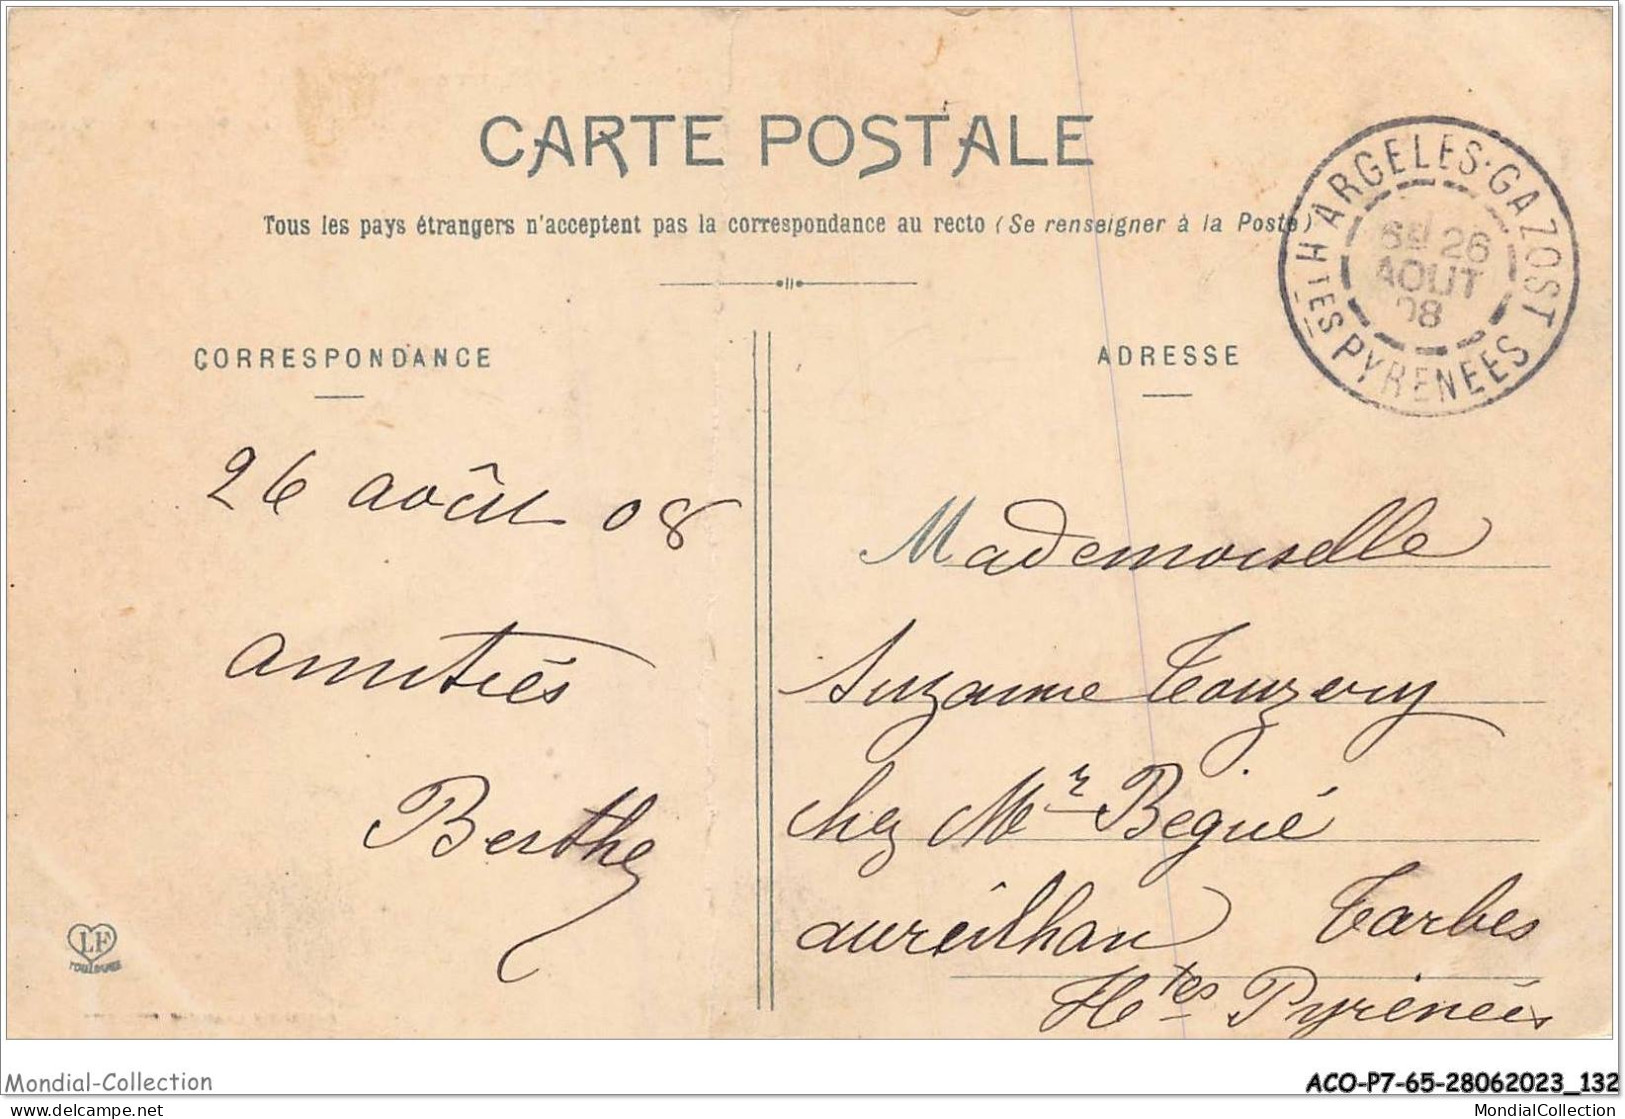 CARTE POSTALE
Tous les pays étrangers n'acceptent pas la correspondance au recto (Se renseigner à la Poste)
ARGELES-GAZOST
26
AOUT
08
HTES PYRENEES
CORRESPONDANCE
ADRESSE
26 août 08
amitiés
Berthe
Mademoiselle
Suzanne Touzery
chez Mr Begué
aureilhan Tarbes
Htes Pyrénées
LF
TOULOUSE
Mondial-Collection
ACO-P7-65-28062023_132
delcampe.net
MondialCollection